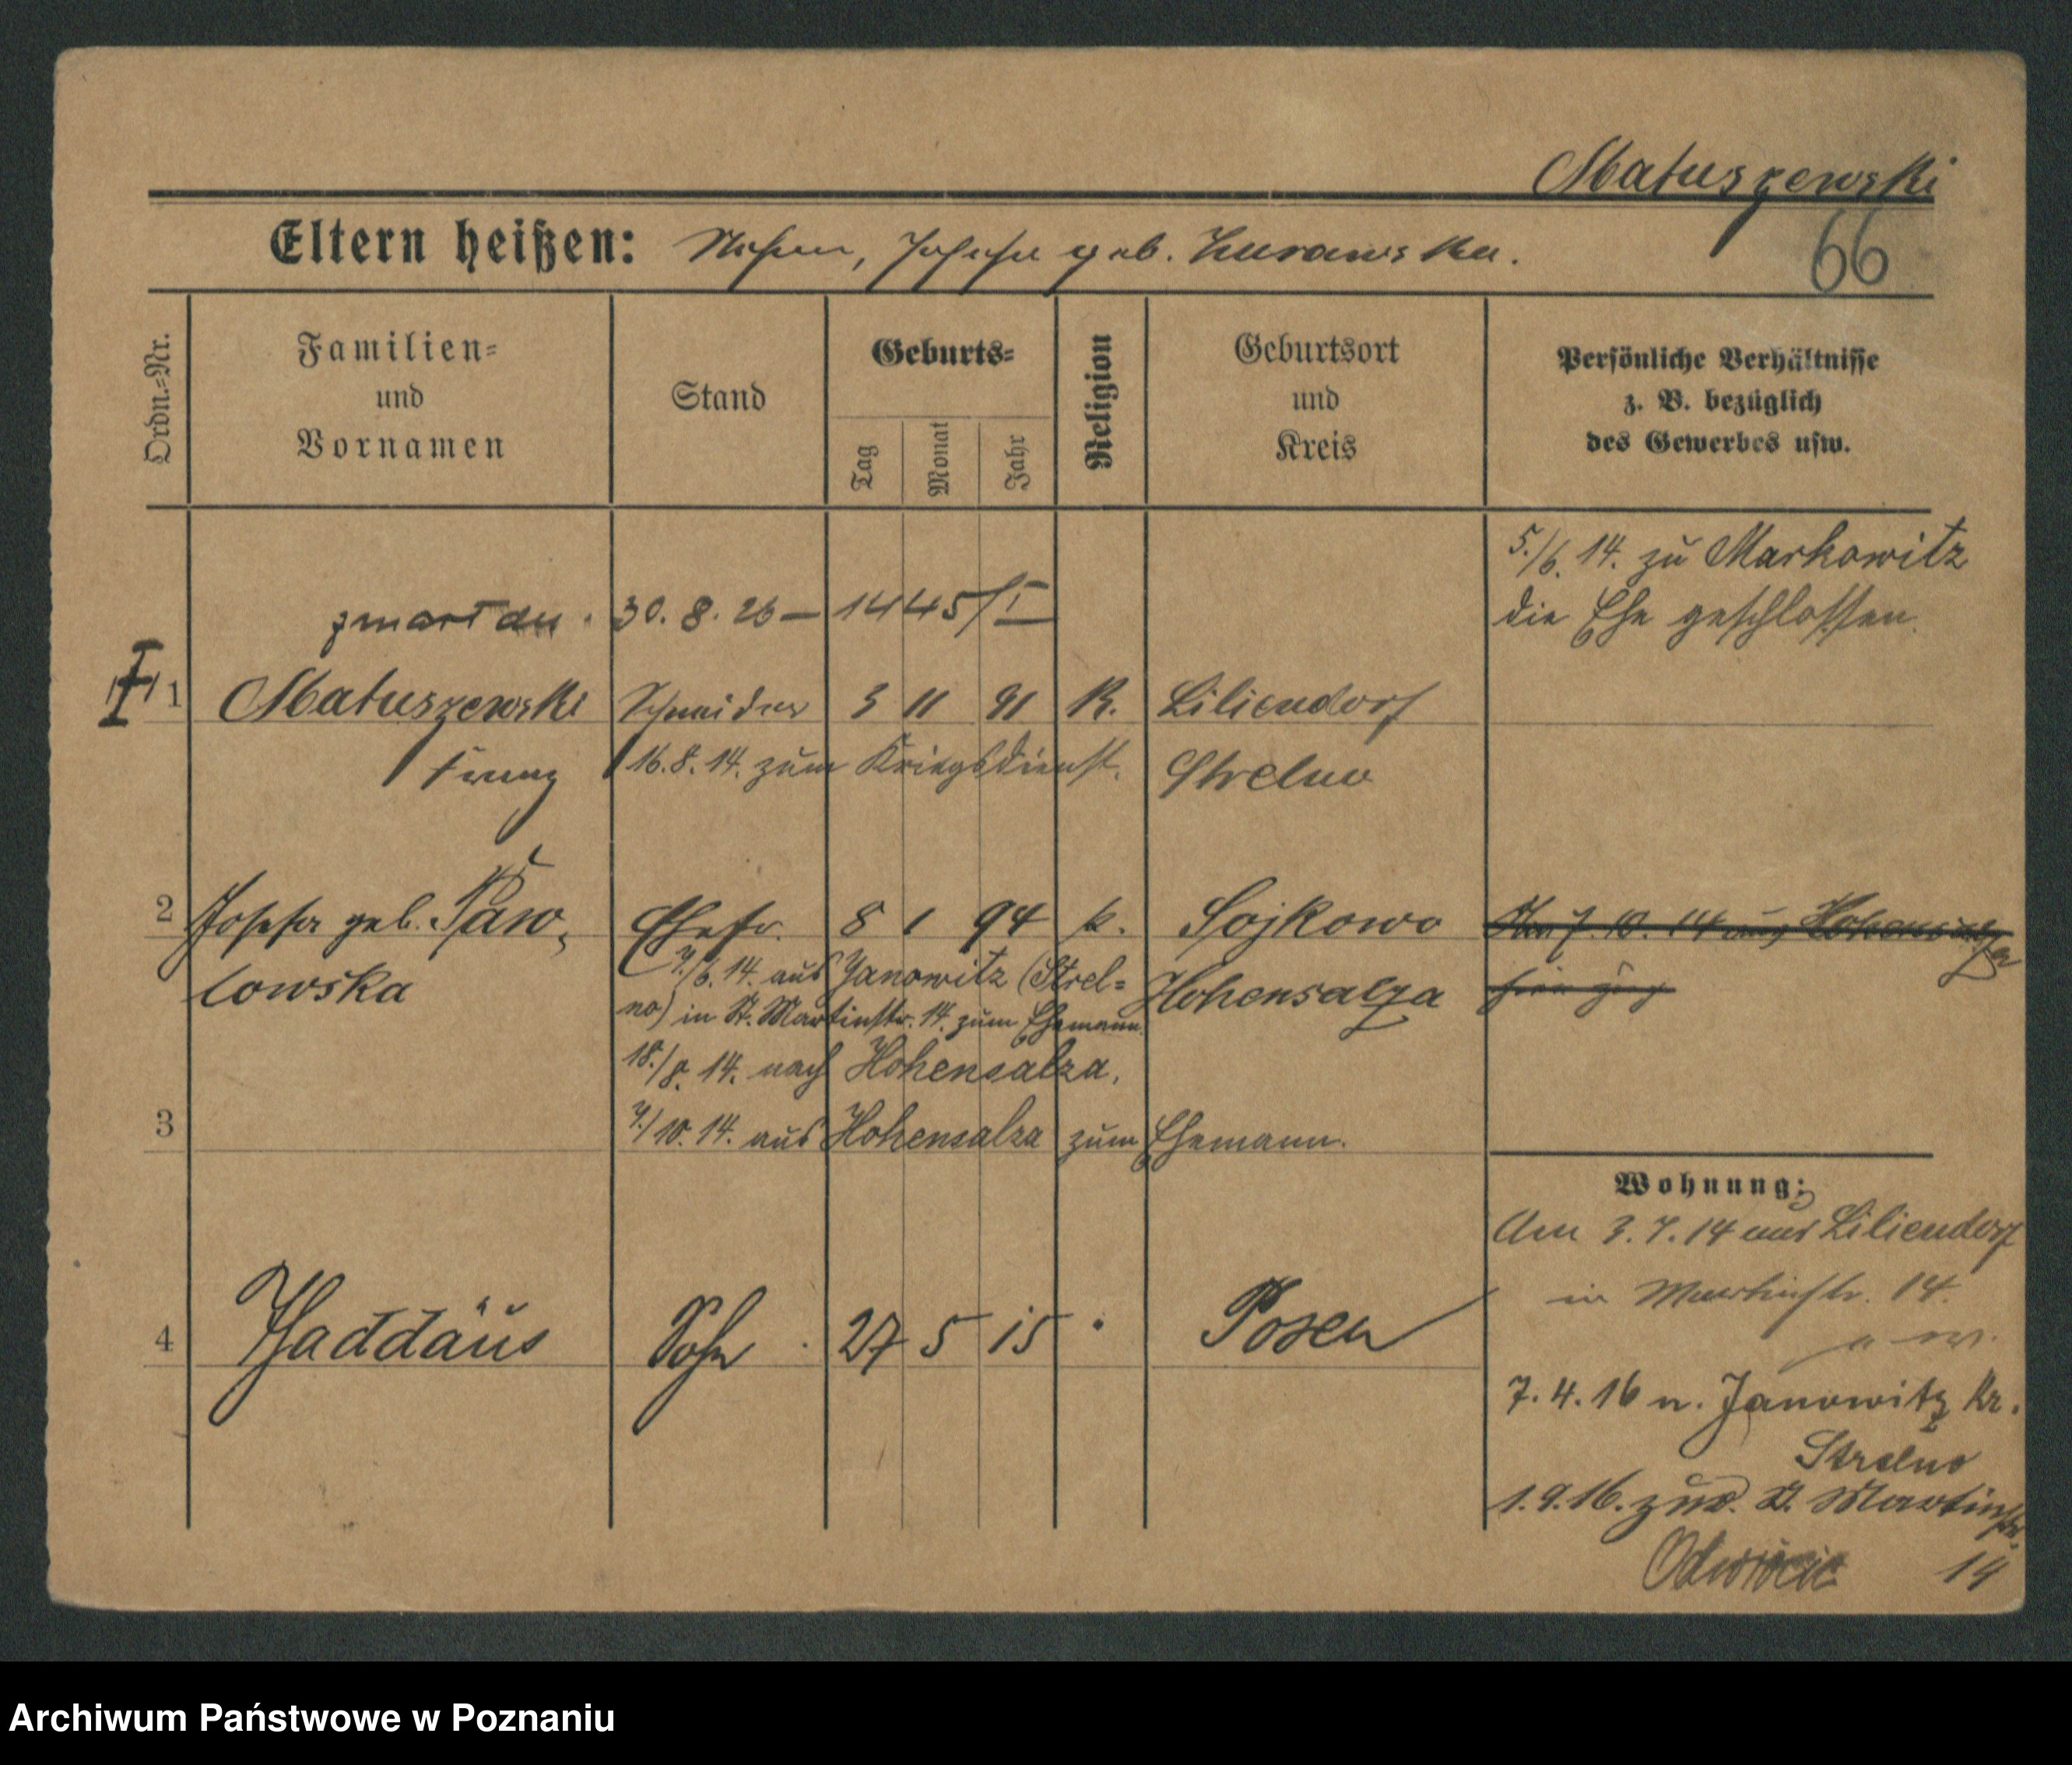 Matuszewski
66
Eltern heißen: Stefan, Josefa geb. Zurawska.
Ordn.=Nr.
Familien=
und
Vornamen
Stand
Geburts=
Tag
Monat
Jahr
Religion
Geburtsort
und
Kreis
Persönliche Verhältnisse
z. B. bezüglich
des Gewerbes usw.
5./6. 14. zu Markowitz
die Ehe geschlossen.
zmarł dn. 30. 8. 26 – 1445/I
1 Matuszewski Schneider 3 11 91 K. Liliendorf
Franz 16. 8. 14. zum Kriegsdienst. Strelno
2 Josefa geb. Paw= Ehefr. 8 1 94 k. Sojkowo 7. 10. 14 aus Hohensalza
lowska 7./6. 14. aus Janowitz (Strel= Hohensalza
no) in St. Martinstr. 14. zum Ehemann.
18./8. 14. nach Hohensalza.
3 7./10. 14. aus Hohensalza zum Ehemann.
Wohnung:
Am 3. 7. 14 aus Liliendorf
in Martinstr. 14.
4 Thaddäus Sohn 27 5 15 Posen
7. 4. 16 n. Janowitz Kr.
Strelno
1. 9. 16. zur. St. Martinstr.
14
Odwrócić
Archiwum Państwowe w Poznaniu